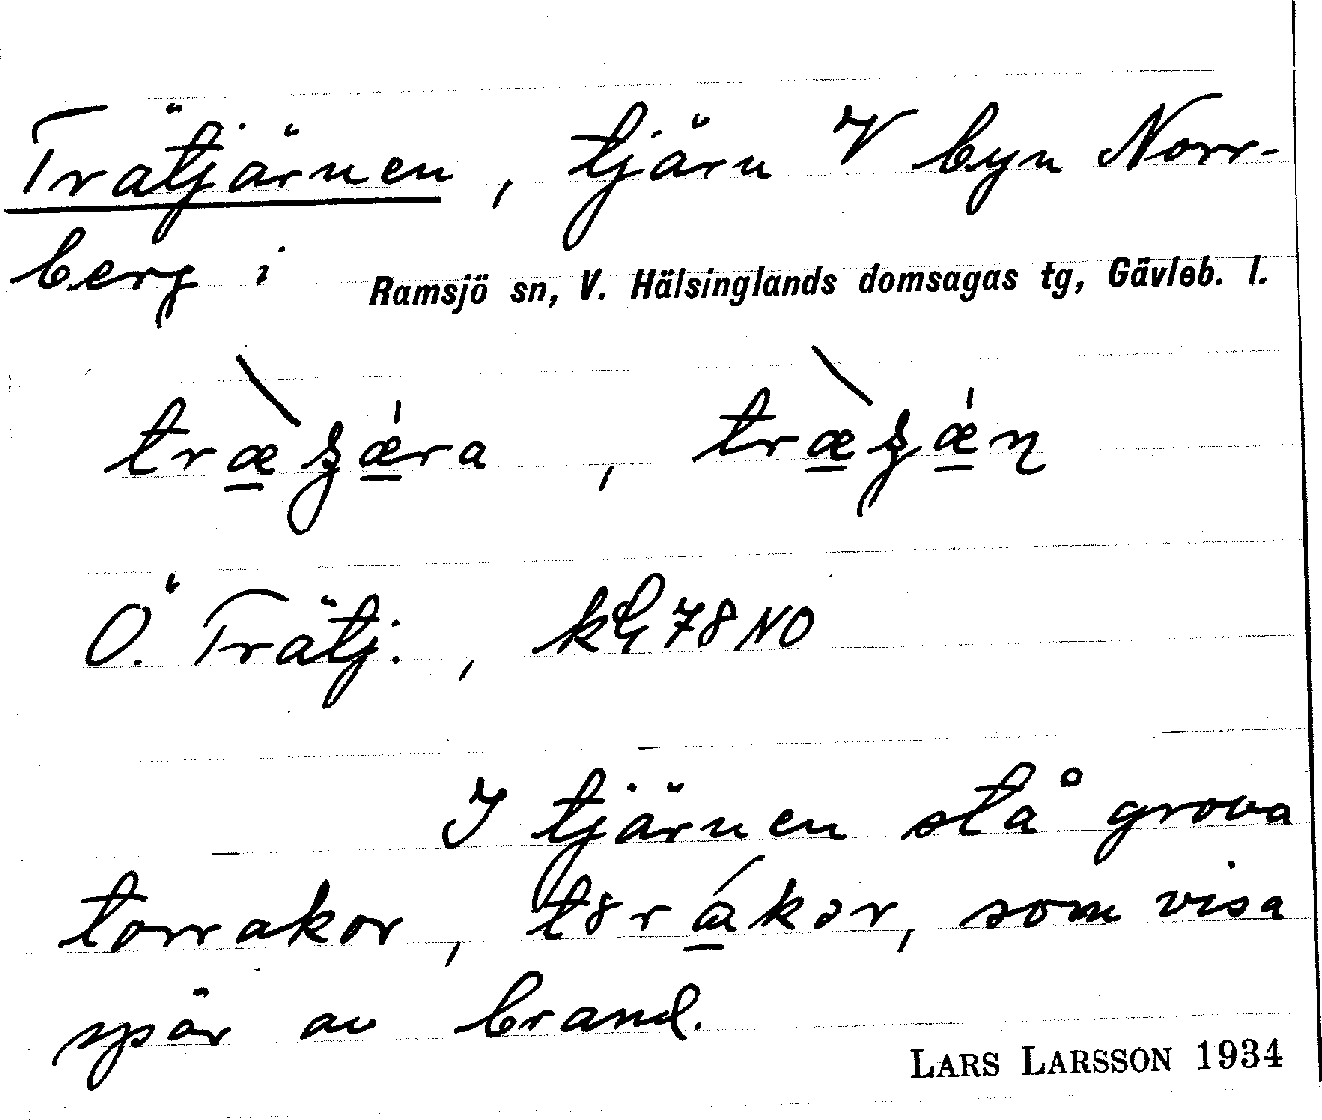 Trätjärnen, tjärn V byn Norr-
berg i Ramsjö sn, V. Hälsinglands domsagas tg, Gävleb. l.
træ̀ʒǽra, træ̀ʒǽn
Ö. Trätj:, kG 78 NO
I tjärnen stå grova
torrakor, t8rákɔr, som visa
spår av brand.
LARS LARSSON 1934